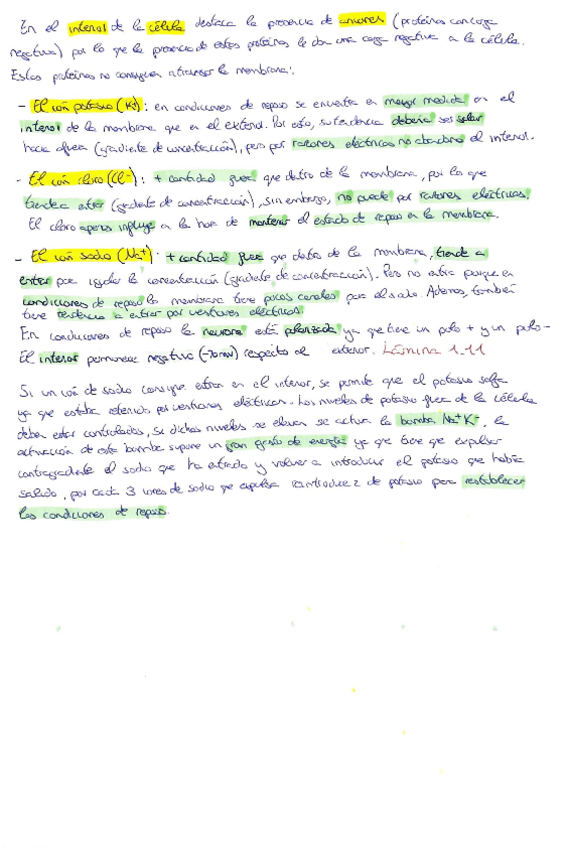 En el interior de la célula destaca la presencia de aniones (proteínas con carga
negativa) por lo que la presencia de estas proteínas le da una carga negativa a la célula.
Estas proteínas no consiguen atravesar la membrana:
- El ión potasio (K+): en condiciones de reposo se encuentra en mayor medida en el
interior de la membrana que en el exterior. Por esto, su tendencia debería ser salir
hacia afuera (gradiente de concentración), pero por razones eléctricas no abandona el interior.
- El ión cloro (Cl-): + cantidad fuera que dentro de la membrana, por lo que
tiende a entrar (gradiente de concentración), sin embargo, no puede por razones eléctricas.
El cloro apenas influye a la hora de mantener el estado de reposo en la membrana.
- El ión sodio (Na+): + cantidad fuera que dentro de la membrana, tiende a
entrar para igualar la concentración (gradiente de concentración). Pero no entra porque en
condiciones de reposo la membrana tiene pocos canales para el sodio. Además, también
tiene resistencia a entrar por cuestiones eléctricas.
En condiciones de reposo la neurona está polarizada ya que tiene un polo + y un polo -
El interior permanece negativo (-70mv) respecto al exterior. Lámina 1.11
Si un ión de sodio consigue entrar en el interior, se permite que el potasio salga
ya que estaba retenido por cuestiones eléctricas. Los niveles de potasio fuera de la célula
deben estar controlados, si dichos niveles se elevan se activa la bomba Na+K-, la
activación de esta bomba supone un gran gasto de energía ya que tiene que expulsar
contragradiente el sodio que ha entrado y volver a introducir el potasio que había
salido, por cada 3 iones de sodio que expulsa reintroduce 2 de potasio para restablecer
las condiciones de reposo.